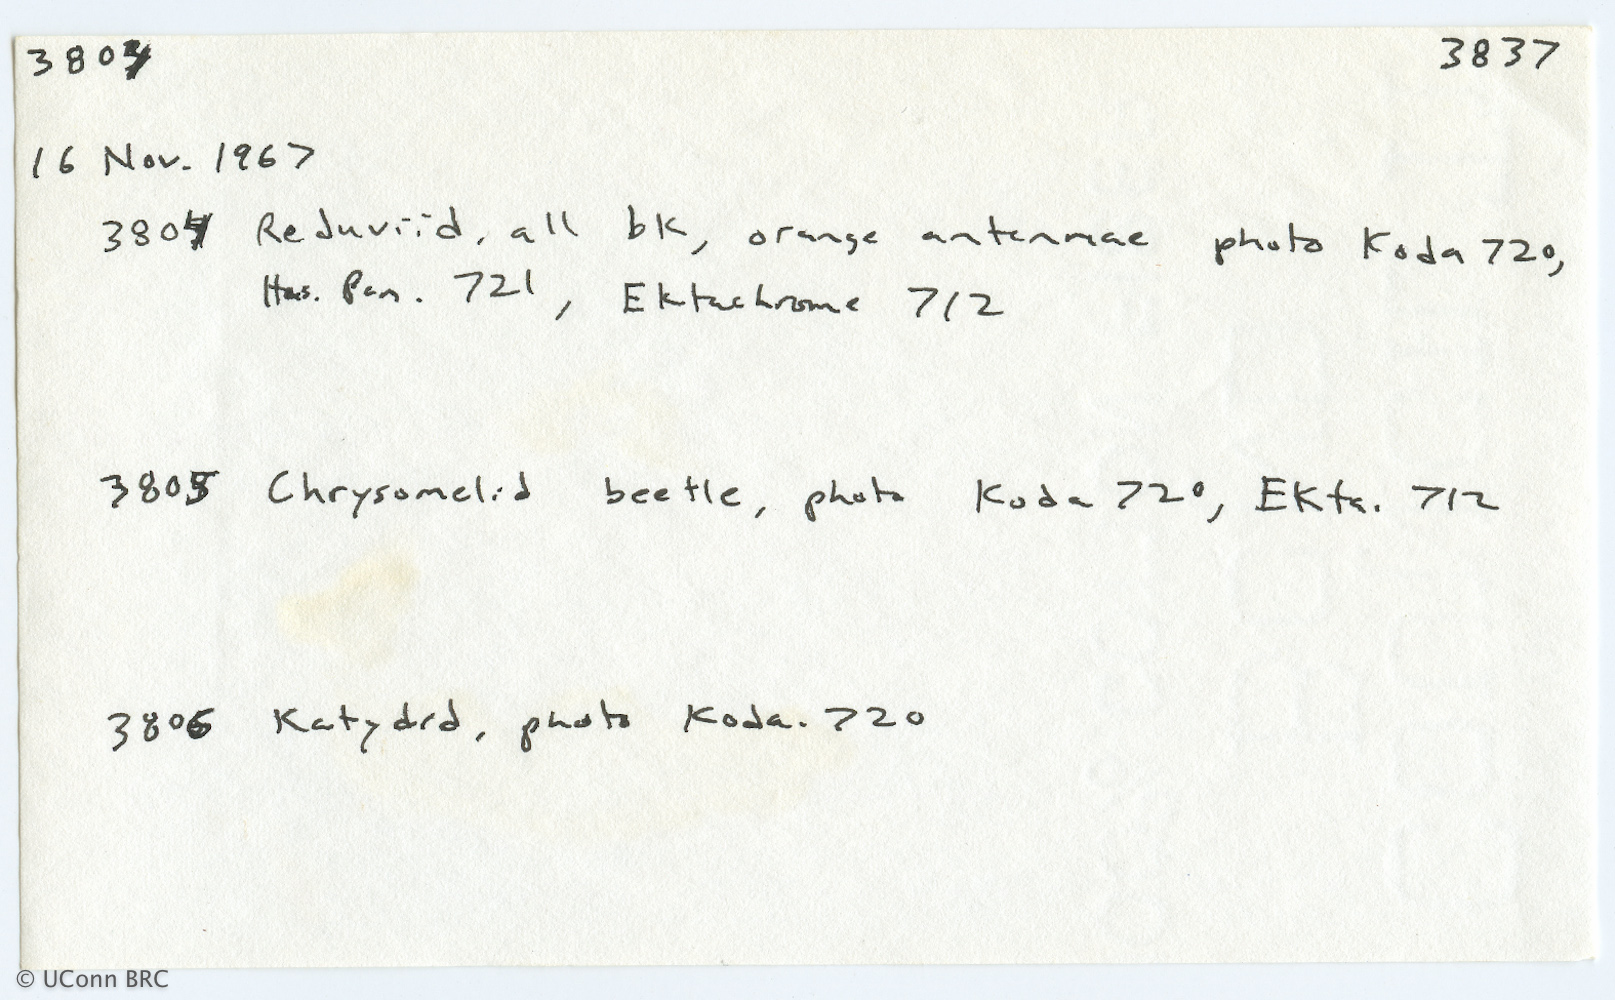 3804 3837
16 Nov. 1967
3804 Reduviid, all bk, orange antennae photo Koda 720,
Has. Pan. 721, Ektachrome 712
3805 Chrysomelid beetle, photo Koda 720, Ekta. 712
3806 Katydid, photo Koda. 720
© UConn BRC